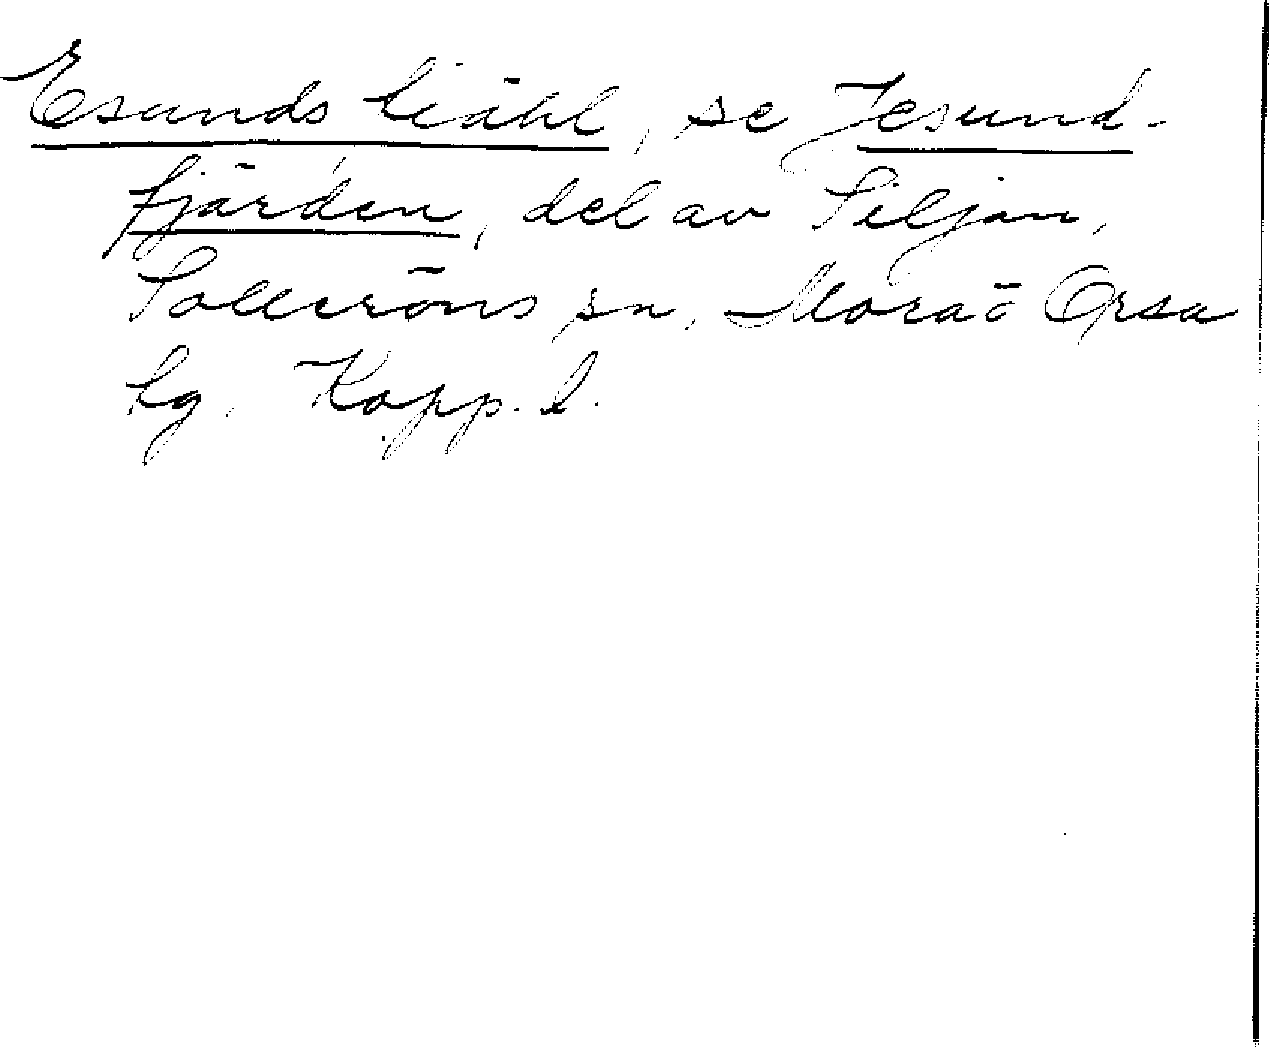 Esunds tiähl, se Jesund-
fjärden, del av Siljan,
Solleröns sn, Mora o Orsa
tg. Kopp. l.